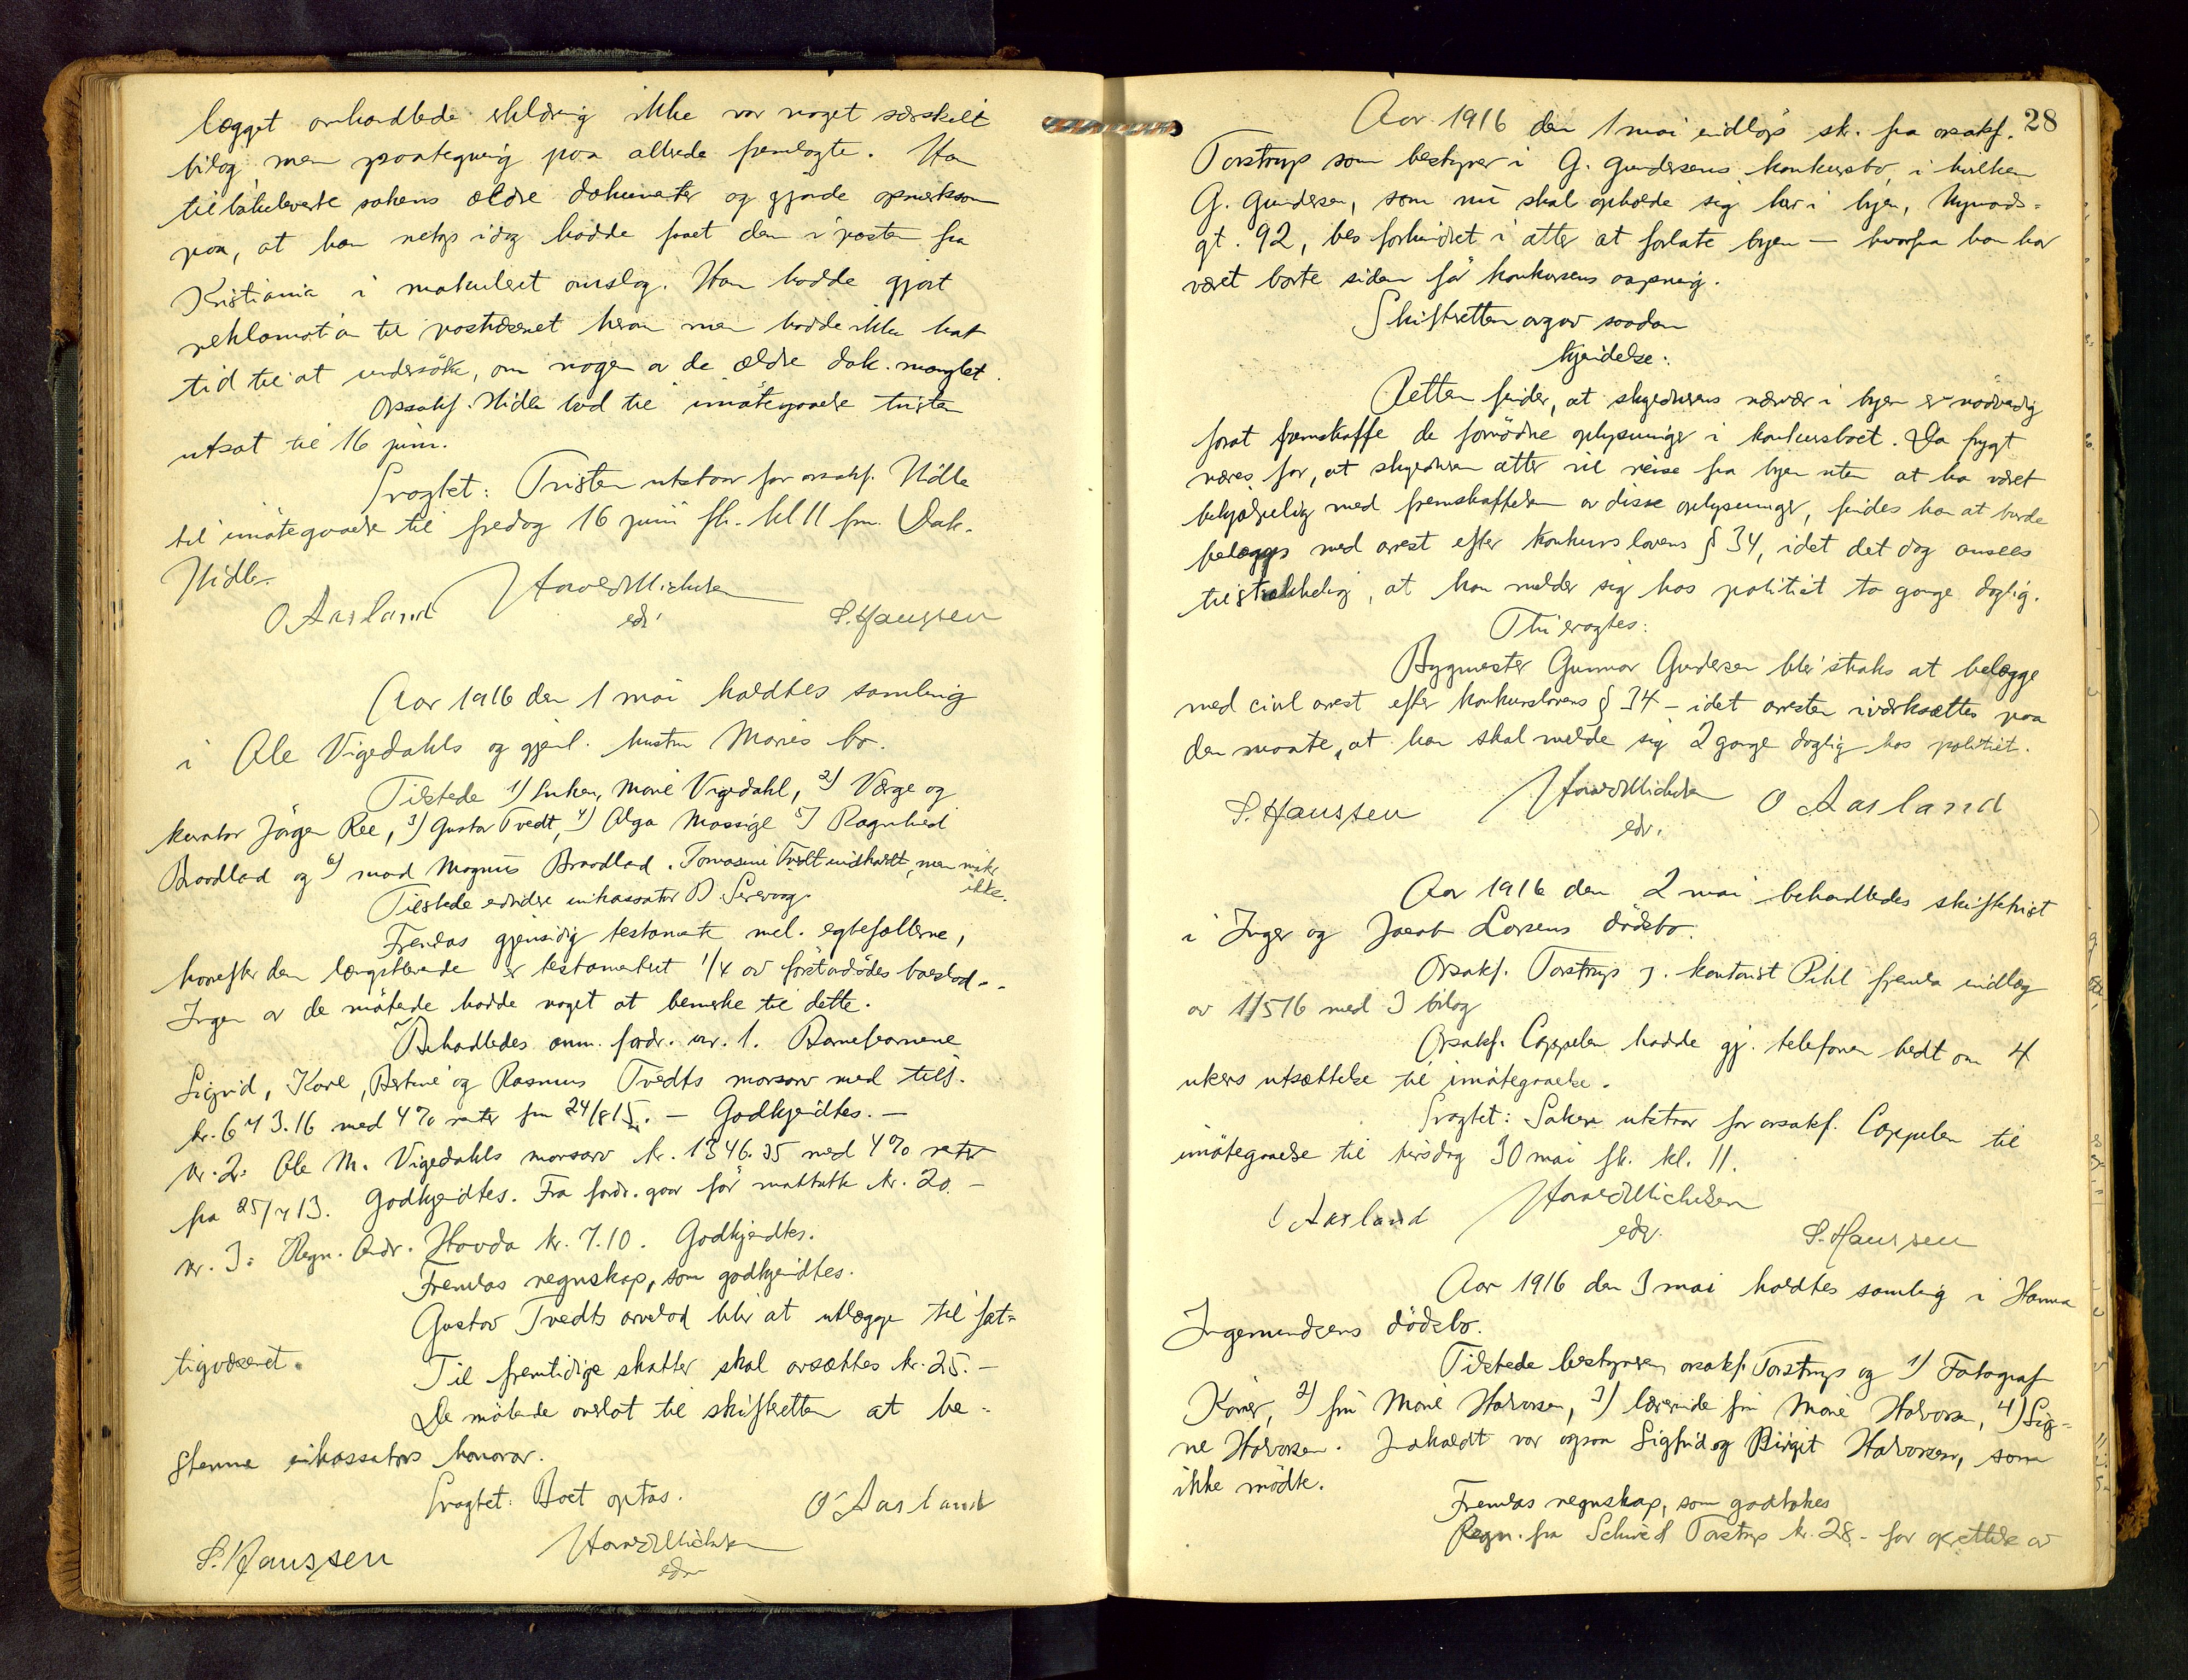 lægget omhandlede erklæring ikke var noget særskilt
bilag, men paategning paa allrede fremlagte. Han
tilbakeleverte sakens ældre dokumenter og gjorde opmerksom
paa, at han netop idag hadde faaet dem i posten fra
Kristiania i makulert omslag. Han hadde gjort
reklamation til postvæsenet herom men hadde ikke hat
tid til at undersöke, om nogen av de ældre dok. manglet.
Orsakf. Hidle bad til imötegaaelse tristen
utsat til 16 juni.
Fragtet: Fristen utstaar for orsakf. Hidle
til imötegaaelse til fredag 16 juni fk. kl 11 fm. Dok.
Hidle.
O Aarland Harald Michelsen S. Hanssen
edv.
Aar 1916 den 1 mai holdtes samling
i Ole Vigedahls og gjenl. hustru Maries bo.
Tilstede 1) Enken, Marie Vigedahl, 2) Værge og
kurator Jörgen Ree, 3) Gustav Tvedt, 4) Olga Massige 5) Ragnhild
Braadland og 6) mand Magnus Braadland. Tomasine Tvedt indkaldt, men mötte
ikke.
Tilstede endvidere inkassator D.
Fremlas gjensidig testamente mel. egtefællerne,
hvorefter den længstlevende er testamentert 1/4 av förstavdödes boeslod..
Ingen av de mötende hadde noget at bemerke til dette.
Behandledes anm. fordr. nr. 1. Barnebarnene
Sigrid, Karl, Bertine og Rasmus Tvedts morsarv med tils.
kr. 673.16 med 4% renter fra 24/8 15. — Godkjendtes. —
Nr. 2: Ole M. Vigedahls morsarv kr. 1346.35 med 4% renter
fra 25/7 13. Godkjendtes. Fra fordr. gaar for kr. 20.-
Nr. 3: Regn. Andr. Hovda kr. 7.10. Godkjendtes.
Fremlas regnskap, som godkjendtes.
Gustav Tvedts arvelod blir at utlægge til fat=
tigvæsenet.
Til fremtidige skatter skal avsættes kr. 25.-
De mötende overlot til skifteretten at be-
stemme inkassators honorar.
Fragtet: Boet optas.
O Aarland
S. Hanssen Harald Michelsen
edv
28
Aar 1916 den 1 mai indlöp sk. fra orsakf.
Torstrup som bestyrer i G. Gundersens konkursbo, i hvilken
G. Gundersen, som nu skal opholde sig her i byen, Nymands-
gt. 92, bes forhindret i atter at forlate byen — hvorfra han har
været borte siden för konkursens aapning.
Skifteretten avgav saadan
kjendelse:
Retten finder, at skyldnerens nærvær i byen er nödvendig
forat fremskaffe de fornödne oplysninger i konkursboet. Da frygt
næres for, at skyldneren atter vil reise fra byen uten at ha været
behjælpelig med fremskaffelsen av disse oplysninger, findes han at burde
belægges med arrest efter konkurslovens § 34, idet det dog ansees
tilstrækkelig, at han melder sig hos politiet to gange daglig.
Thi eragtes:
Bygmester Gunnar Gundersen blir straks at belægge
med civil arrest efter konkurslovens § 34 – idet arresten iverksættes paa
den maate, at han skal melde sig 2 gange daglig hos politiet.
S. Hanssen Harald Michelsen O Aarland
edv.
Aar 1916 den 2 mai behandledes skiftetvist
i Inger og Jacob Larsens dödsbo.
Orsakf. Torstrup v. kontorist Pihl fremla indlæg
av 1/5 16 med 3 bilag
Orsakf. Cappelen hadde gj. telefonen bedt om 4
ukers utsættelse til imötegaaelse.
Fragtet: Saken utstaar for orsakf. Cappelen til
imötegaaelse til tirsdag 30 mai fk. kl. 11.
O Aarland Harald Michelsen
edv. S. Hanssen
Aar 1916 den 3 mai holdtes samling i Hanna
Ingemundsens dödsbo.
Tilstede bestyreren, orsakf. Torstrup og 1) Fotograf
2) fru Marie Halvorsen, 3) lærerinde frk Marie Halvorsen, 4) Sig=
ne Halvorsen. Indkaldt var ogsaa Sigfrid og Birgit Halvorsen, som
ikke mödte.
Fremlas regnskap, som godtokes
Regn. fra Torstrup kr. 28.- for oprettelse av